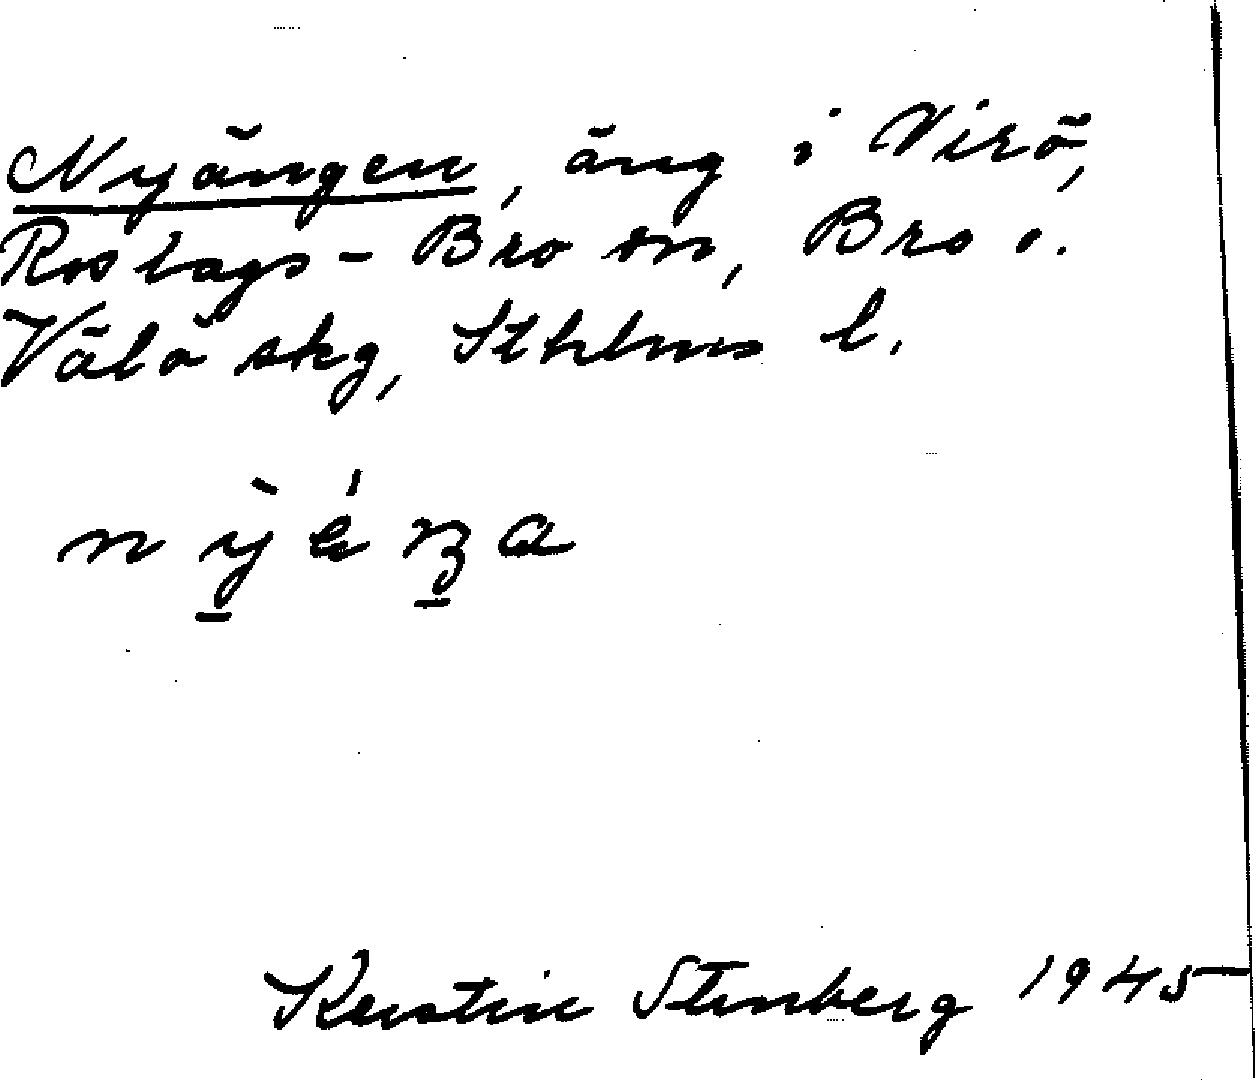 Nyängen, äng i Virö,
Roslags-Bro sn, Bro o.
Välö skg, Sthlms l.
Kerstin Stenberg 1945